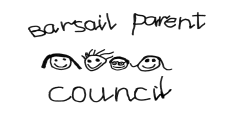 Barsail parent
council